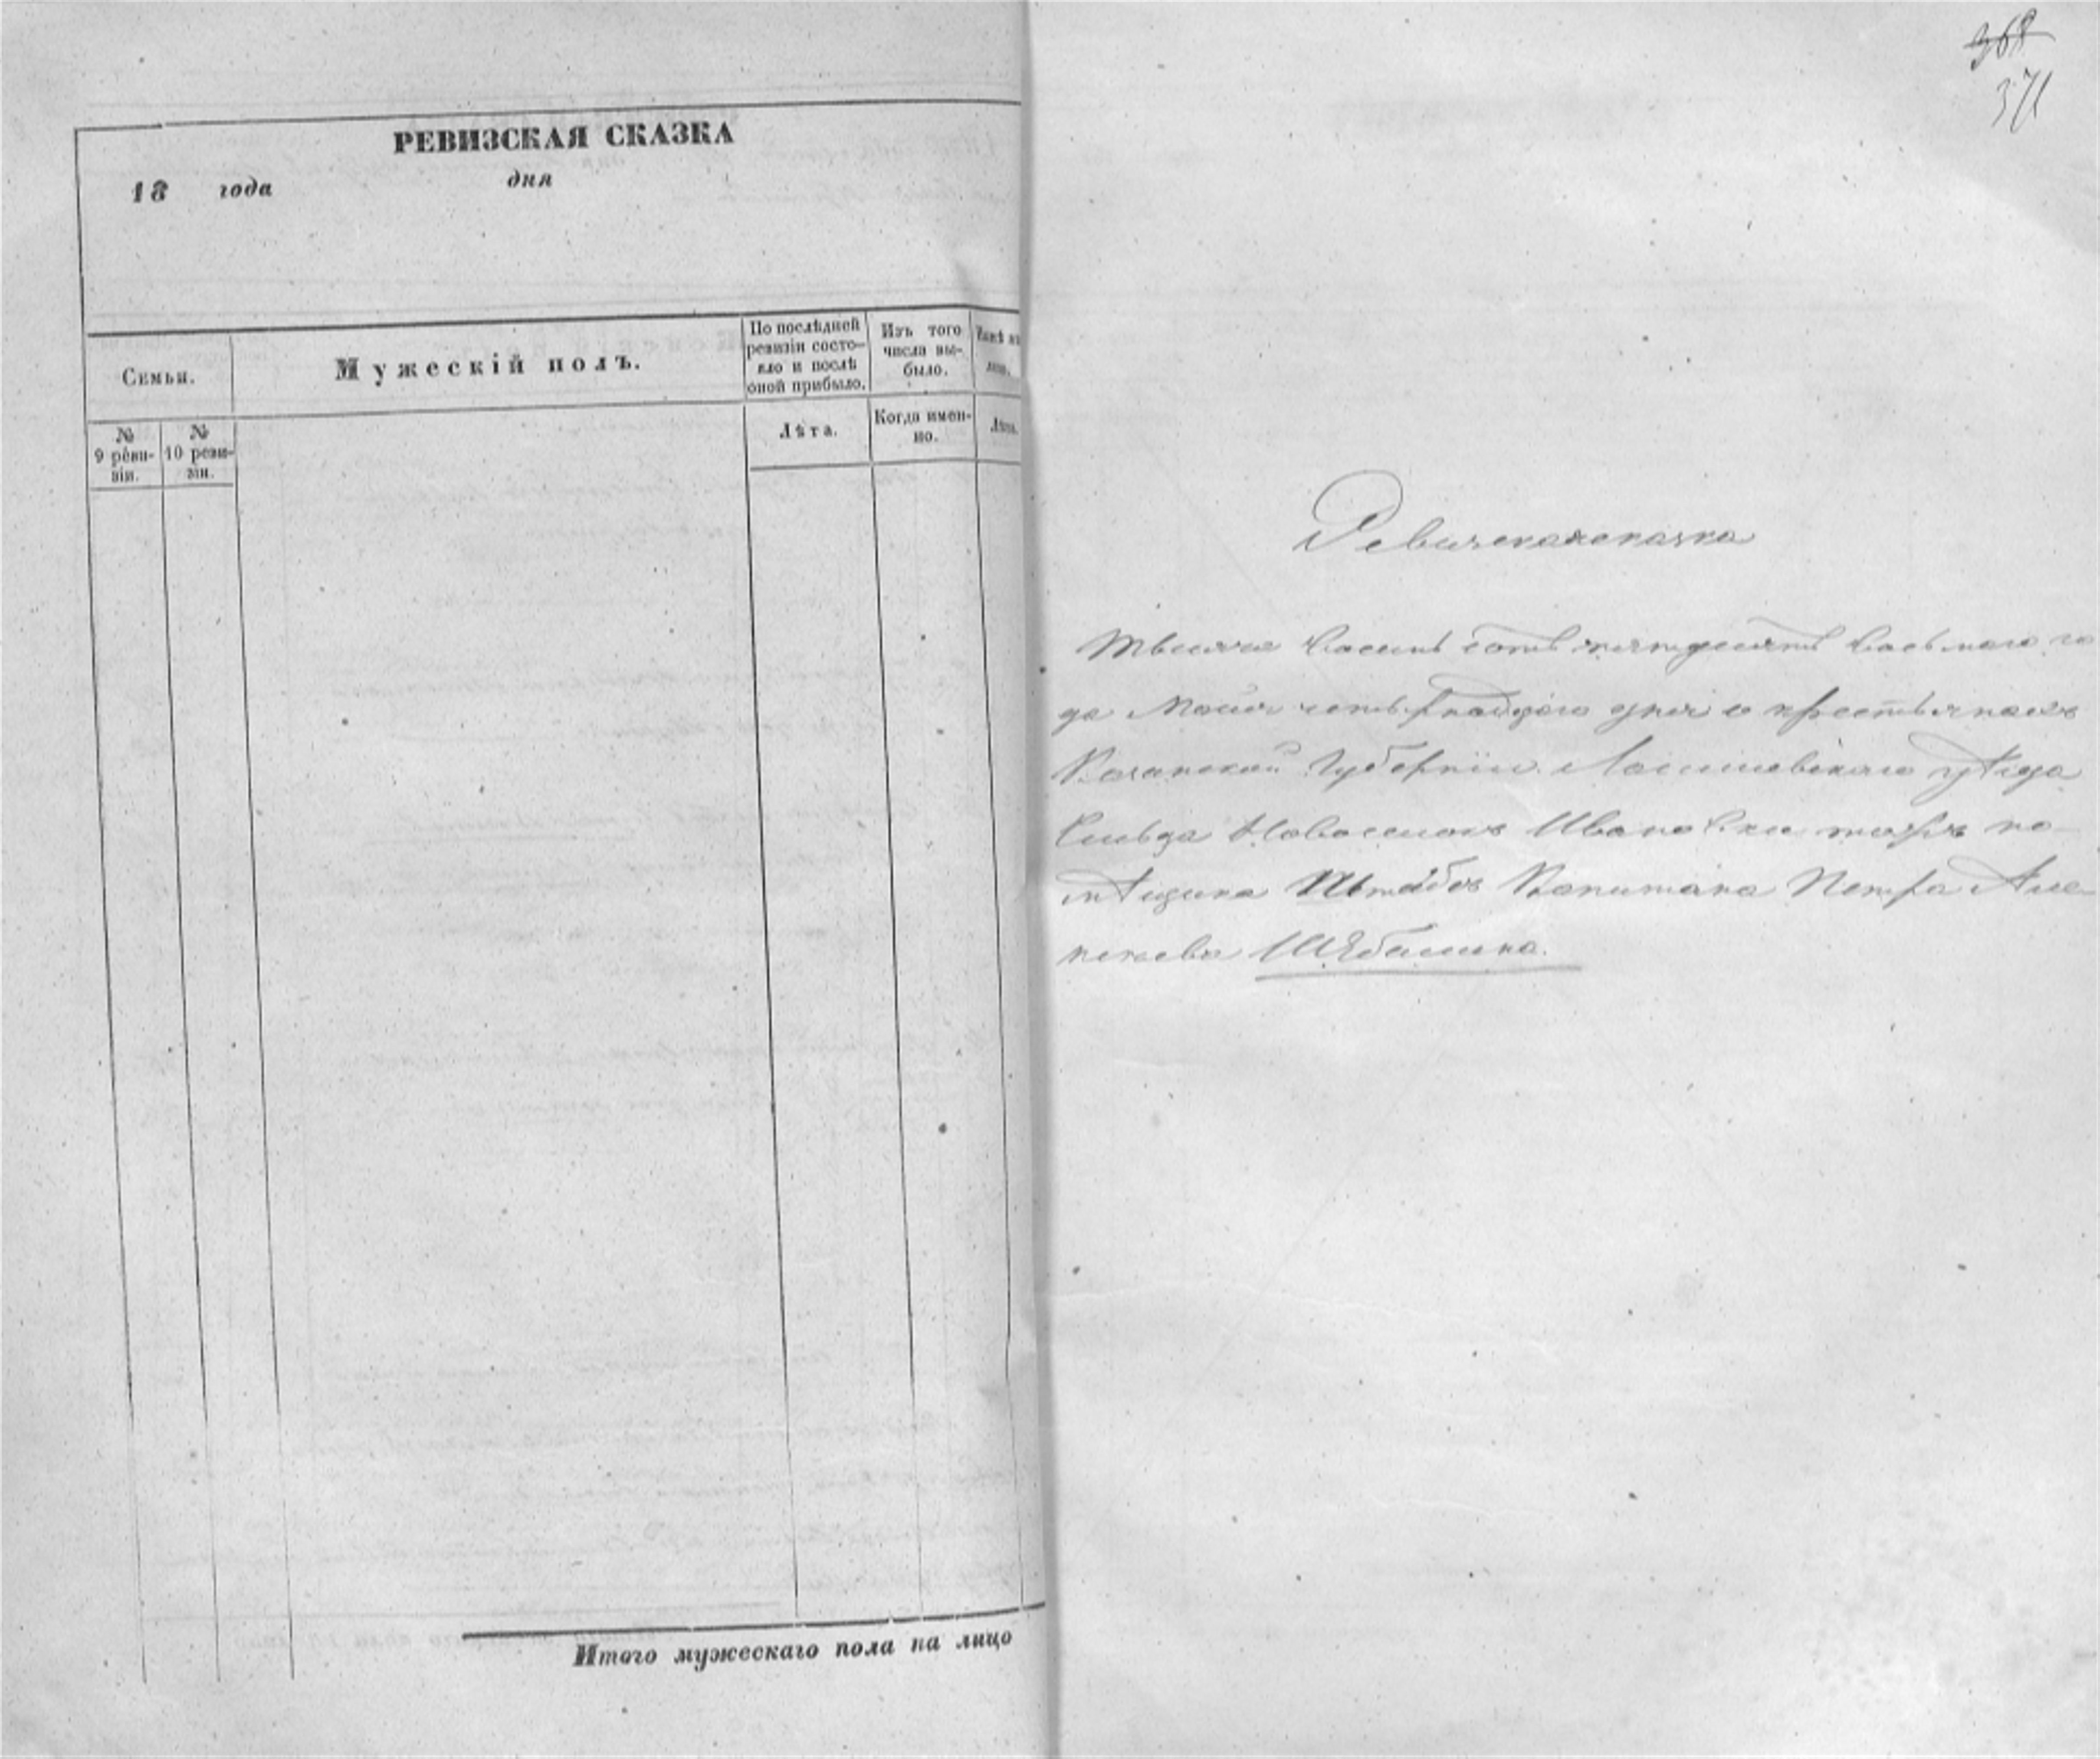 РЕВИЗСКАЯ СКАЗКА
18 года дня
Семьи.
Мужескій полъ.
По послѣдней
ревизіи состо-
яло и послѣ
оной прибыло.
Изъ того
числа вы-
было.
№
9 реви-
зіи.
№
10 реви-
зіи.
Лѣта.
Когда имен-
но.
Лѣта.
Итого мужескаго пола на лицо
368
371
Ревизская сказка
Тысяча восемь сотъ пятдесятъ восьмаго го
да Маія дня о крестьянахъ
Казанской Губерніи Лаишевскаго уѣзда
Сельца Новоселокъ Ивановки тожъ по-
мѣщика Штабсъ Капитана Петра Але-
ксѣева